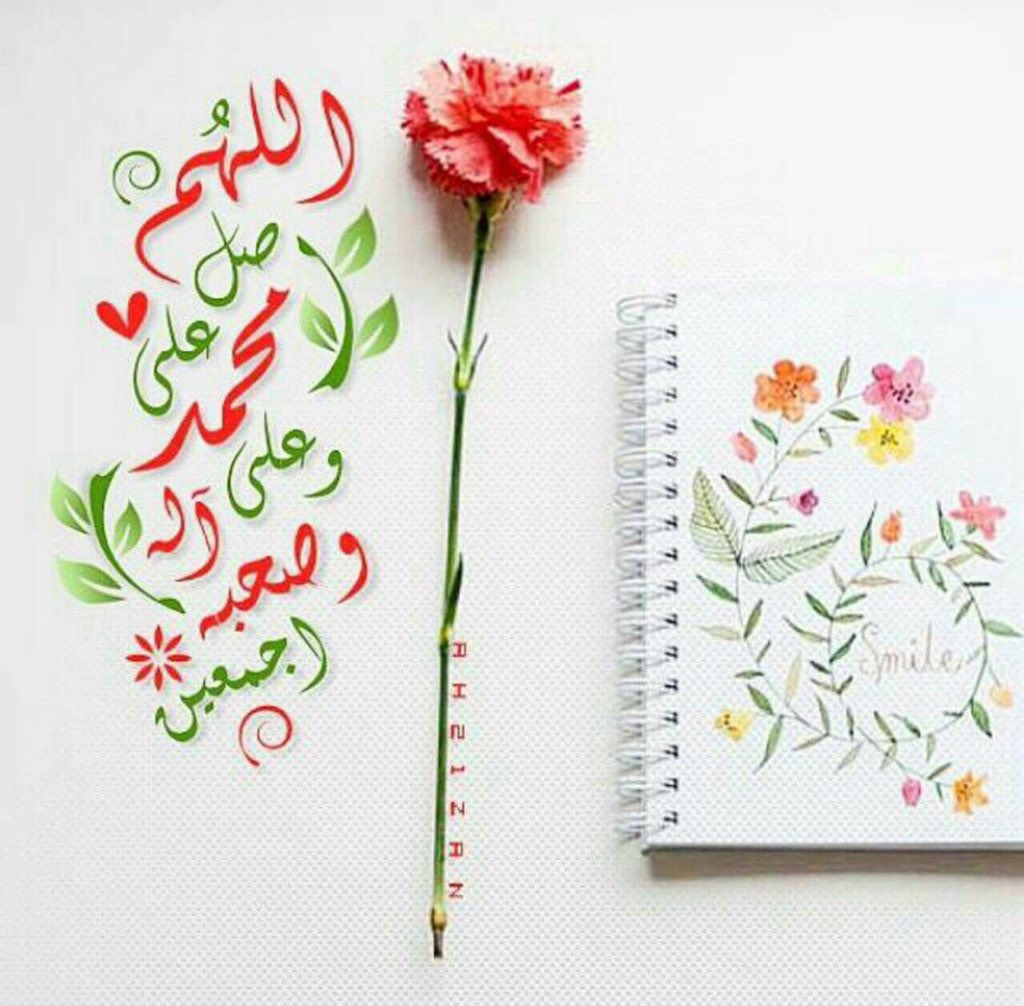 اللهُم
صل
على
محمد
وعلى
آله
وصحبه
اجمعين
AHZIZAN
Smile